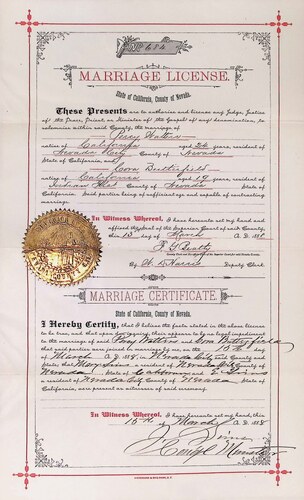 No. 684
MARRIAGE LICENSE.
State of California, County of Nevada.
These Presents are to authorize and license any Judge, Justice
of the Peace, Priest, or Minister of the Gospel of any denomination, to
solemnize within said County, the marriage of
Percy Watters
native of California aged 24 years, resident of
Nevada City County of Nevada
State of California, and
Cora Butterfield
native of California aged 19 years, resident of
Indian Flat County of Nevada
State of California. Said parties being of sufficient age and capable of contracting
marriage.
In Witness Whereof, I have hereunto set my hand and
affixed the seal of the Superior Court of said County,
this 15 March A.D. 188
F. G. Beatty
By Deputy Clerk.
MARRIAGE CERTIFICATE.
State of California, County of Nevada.
I Hereby Certify, that I believe the facts stated in the above license
to be true, and that upon due inquiry, there appears to be no legal impediment
to the marriage of said Percy Watters and Cora Butterfield
that said parties were joined in marriage by me, on the 15th day of
March A.D. 188, in Nevada City said County and
State; that a resident of Nevada City County of
Nevada State of California and
a resident of Nevada City County of Nevada State of
California, are present as witnesses of said ceremony.
In Witness Whereof, I have hereunto set my hand, this
15th of March A.D. 188
J. Sims